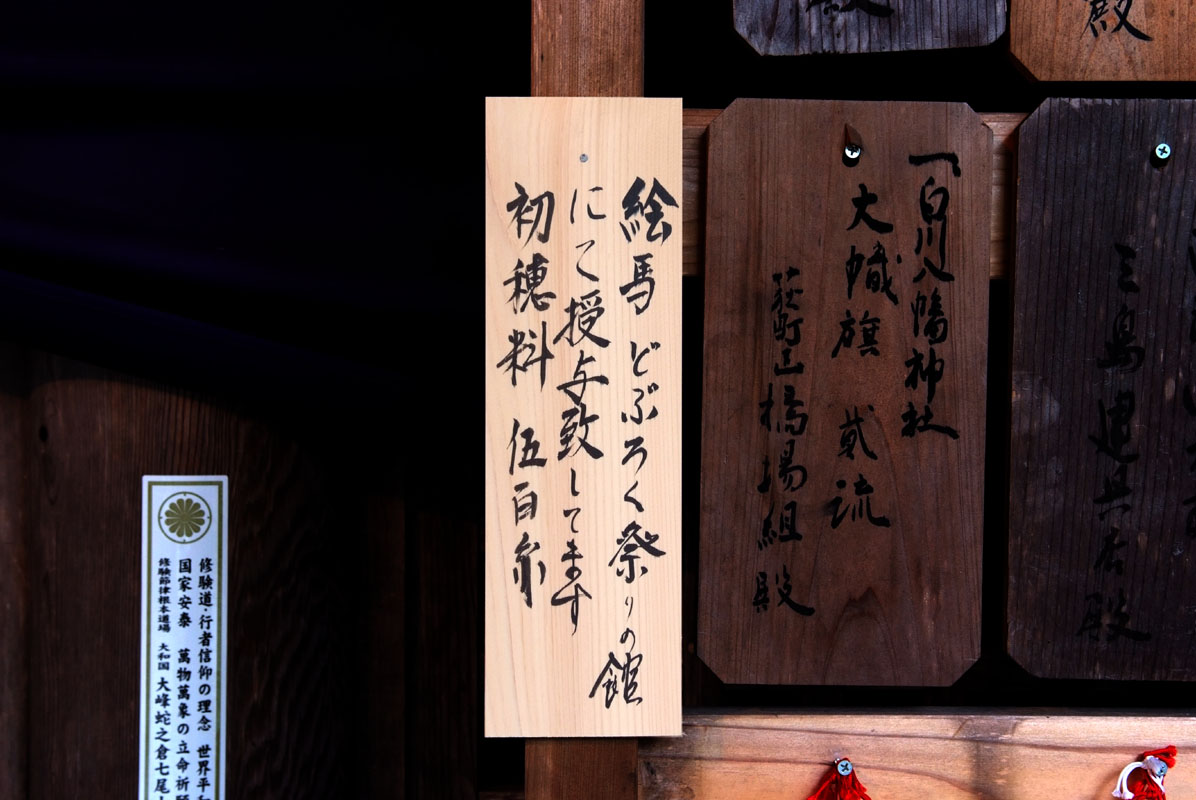 殿
殿
三島建具店殿
一白川八幡神社
大幟旗 貳流
荻町区橋場組殿
絵馬 どぶろく祭りの館
にご授与致してます
初穂料 伍百圓
修験道・行者信仰の理念 世界平和
国家安泰 萬物萬象の立命・祈願
修験節律根本道場 大和国 大峰蛇之倉七尾山